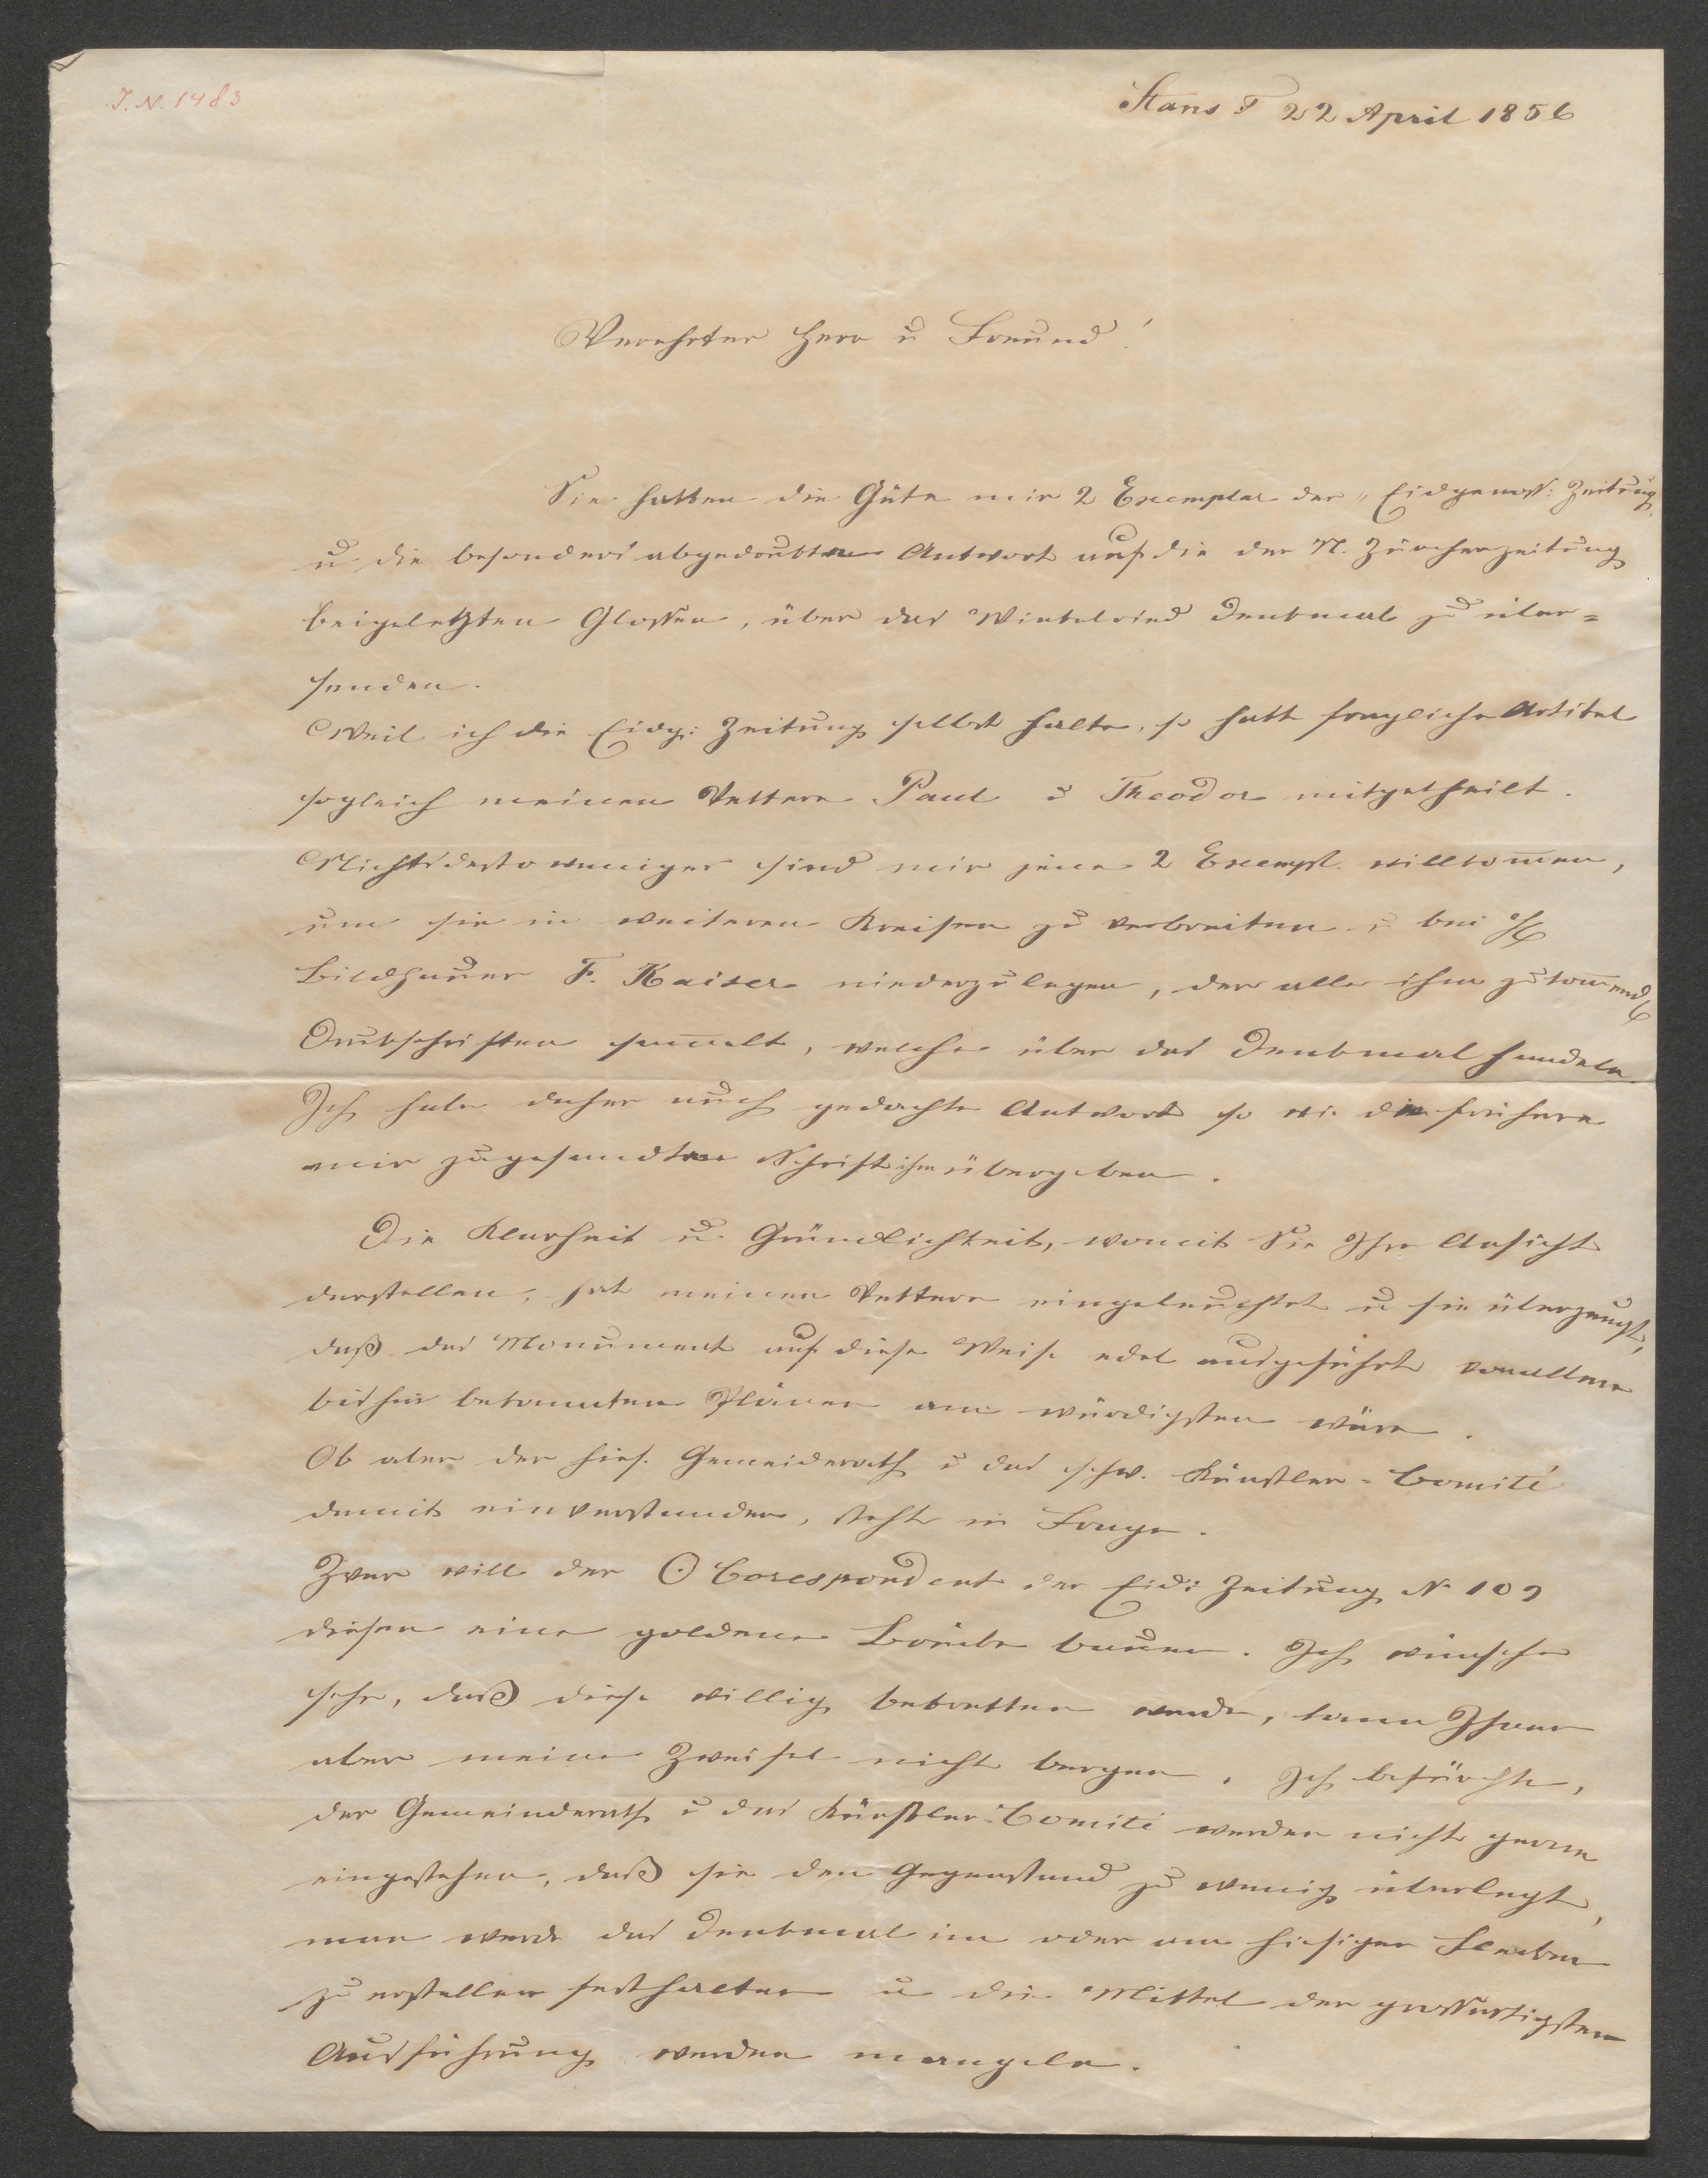 J. N. 1483
Stans d 22 April 1856
Verehrter Herr u Freund!
Sie hatten die Güte mir 2 Exemplar der „Eidgenoss: Zeitung
u die besonders abgedruckte Antwort auf die der N. Zürcherzeitung
beigesetzten Glossen, über das Winkelried Denkmal zu über=
senden.
Weil ich die Eidg: Zeitung selbst halte, so hatte fragliche Artikel
sogleich meinen Vettern Paul u Theodor mitgetheilt.
Nichtsdestoweniger sind mir jene 2 Exempl. willkom̄en,
um sie in weiteren Kreisen zu verbreiten u bei H
Bildhauer F. Kaiser niederzulegen, der alle ihm zukom̄end
Druckschriften sam̄elt, welche über das Denkmal handeln
Ich habe daher auch gedachte Antwort so wie die frühere
mir zugesandte Schrift ihm übergeben.
Die Klarheit u. Gründlichkeit, womit Sie Ihre Ansicht
darstellen, hat meinen Vettern eingeleuchtet u sie überzeugt,
daß das Monument auf diese Weise edel ausgeführt von allen
bishin bekannten Plänen am würdigsten wäre.
Ob aber der hies. Gemeiderath u das schw. Künstler-Comité
damit einverstanden, steht in Frage.
Zwar will der ⊙ Corespondent der Eid: Zeitung No 109
diesen eine goldene Brücke bauen. Ich wünsche
sehr, daß diese willig betretten werde, kann Ihnen
aber meine Zweifel nicht bergen. Ich befürchte,
der Gemeinderath u das Künstler-Comité werden nicht gerne
eingestehen, daß sie den Gegenstand zu wenig überlegt,
man werde das Denkmal im oder am hiesigen Flecken
zu erstellen festhalten u die Mittel der großartigsten
Ausführung werden mangeln.